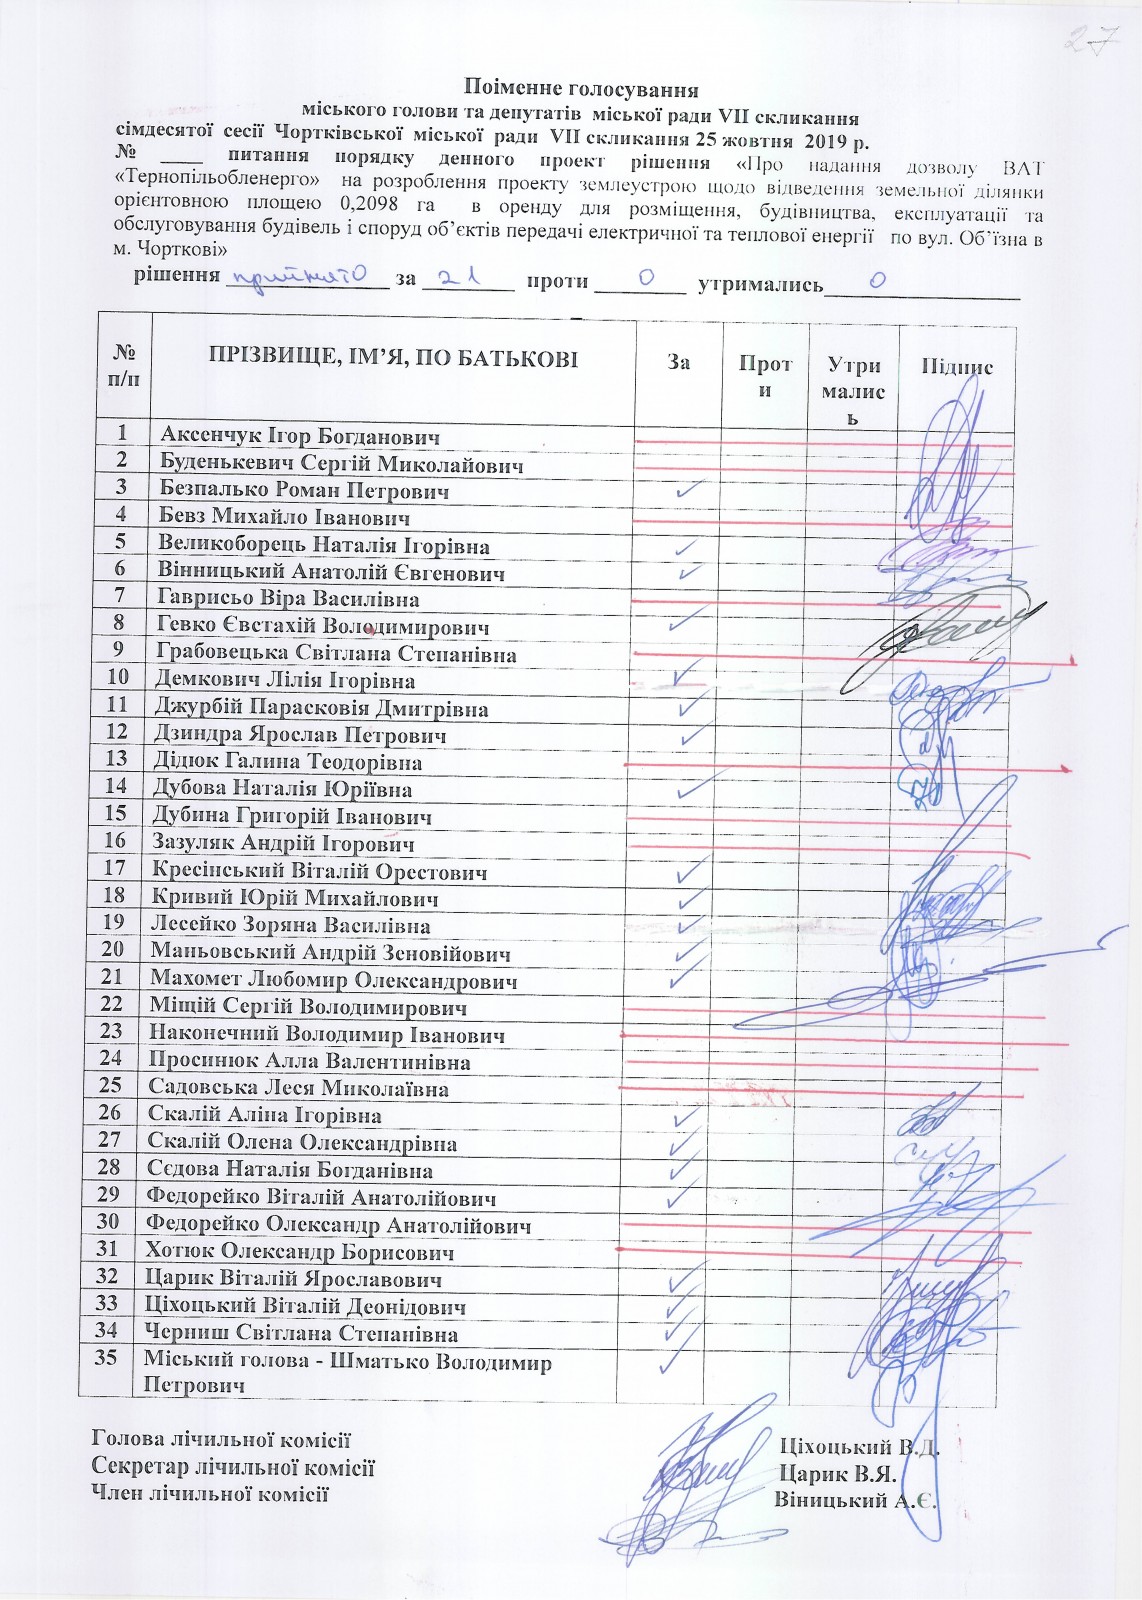 27
Поіменне голосування
міського голови та депутатів міської ради VII скликання
сімдесятої сесії Чортківської міської ради VII скликання 25 жовтня 2019 р.
№ ____ питання порядку денного проект рішення «Про надання дозволу ВАТ
«Тернопільобленерго» на розроблення проекту землеустрою щодо відведення земельної ділянки
орієнтовною площею 0,2098 га в оренду для розміщення, будівництва, експлуатації та
обслуговування будівель і споруд об’єктів передачі електричної та теплової енергії по вул. Об’їзна в
м. Чорткові»
рішення прийнято за 21 проти 0 утримались 0
№ п/п ПРІЗВИЩЕ, ІМ’Я, ПО БАТЬКОВІ За Проти Утрималис ь Підпис
1 Аксенчук Ігор Богданович
2 Буденькевич Сергій Миколайович
3 Безпалько Роман Петрович ✓
4 Бевз Михайло Іванович
5 Великоборець Наталія Ігорівна ✓
6 Вінницький Анатолій Євгенович ✓
7 Гаврисьо Віра Василівна
8 Гевко Євстахій Володимирович ✓
9 Грабовецька Світлана Степанівна
10 Демкович Лілія Ігорівна ✓
11 Джурбій Парасковія Дмитрівна ✓
12 Дзиндра Ярослав Петрович ✓
13 Дідюк Галина Теодорівна
14 Дубова Наталія Юріївна ✓
15 Дубина Григорій Іванович
16 Зазуляк Андрій Ігорович
17 Кресінський Віталій Орестович ✓
18 Кривий Юрій Михайлович ✓
19 Лесейко Зоряна Василівна ✓
20 Маньовський Андрій Зеновійович ✓
21 Махомет Любомир Олександрович ✓
22 Міщій Сергій Володимирович
23 Наконечний Володимир Іванович
24 Просинюк Алла Валентинівна
25 Садовська Леся Миколаївна
26 Скалій Аліна Ігорівна ✓
27 Скалій Олена Олександрівна ✓
28 Сєдова Наталія Богданівна ✓
29 Федорейко Віталій Анатолійович ✓
30 Федорейко Олександр Анатолійович
31 Хотюк Олександр Борисович
32 Царик Віталій Ярославович ✓
33 Ціхоцький Віталій Деонідович ✓
34 Черниш Світлана Степанівна ✓
35 Міський голова - Шматько Володимир ✓
Петрович
Голова лічильної комісії Ціхоцький В.Д.
Секретар лічильної комісії Царик В.Я.
Член лічильної комісії Віницький А.Є.